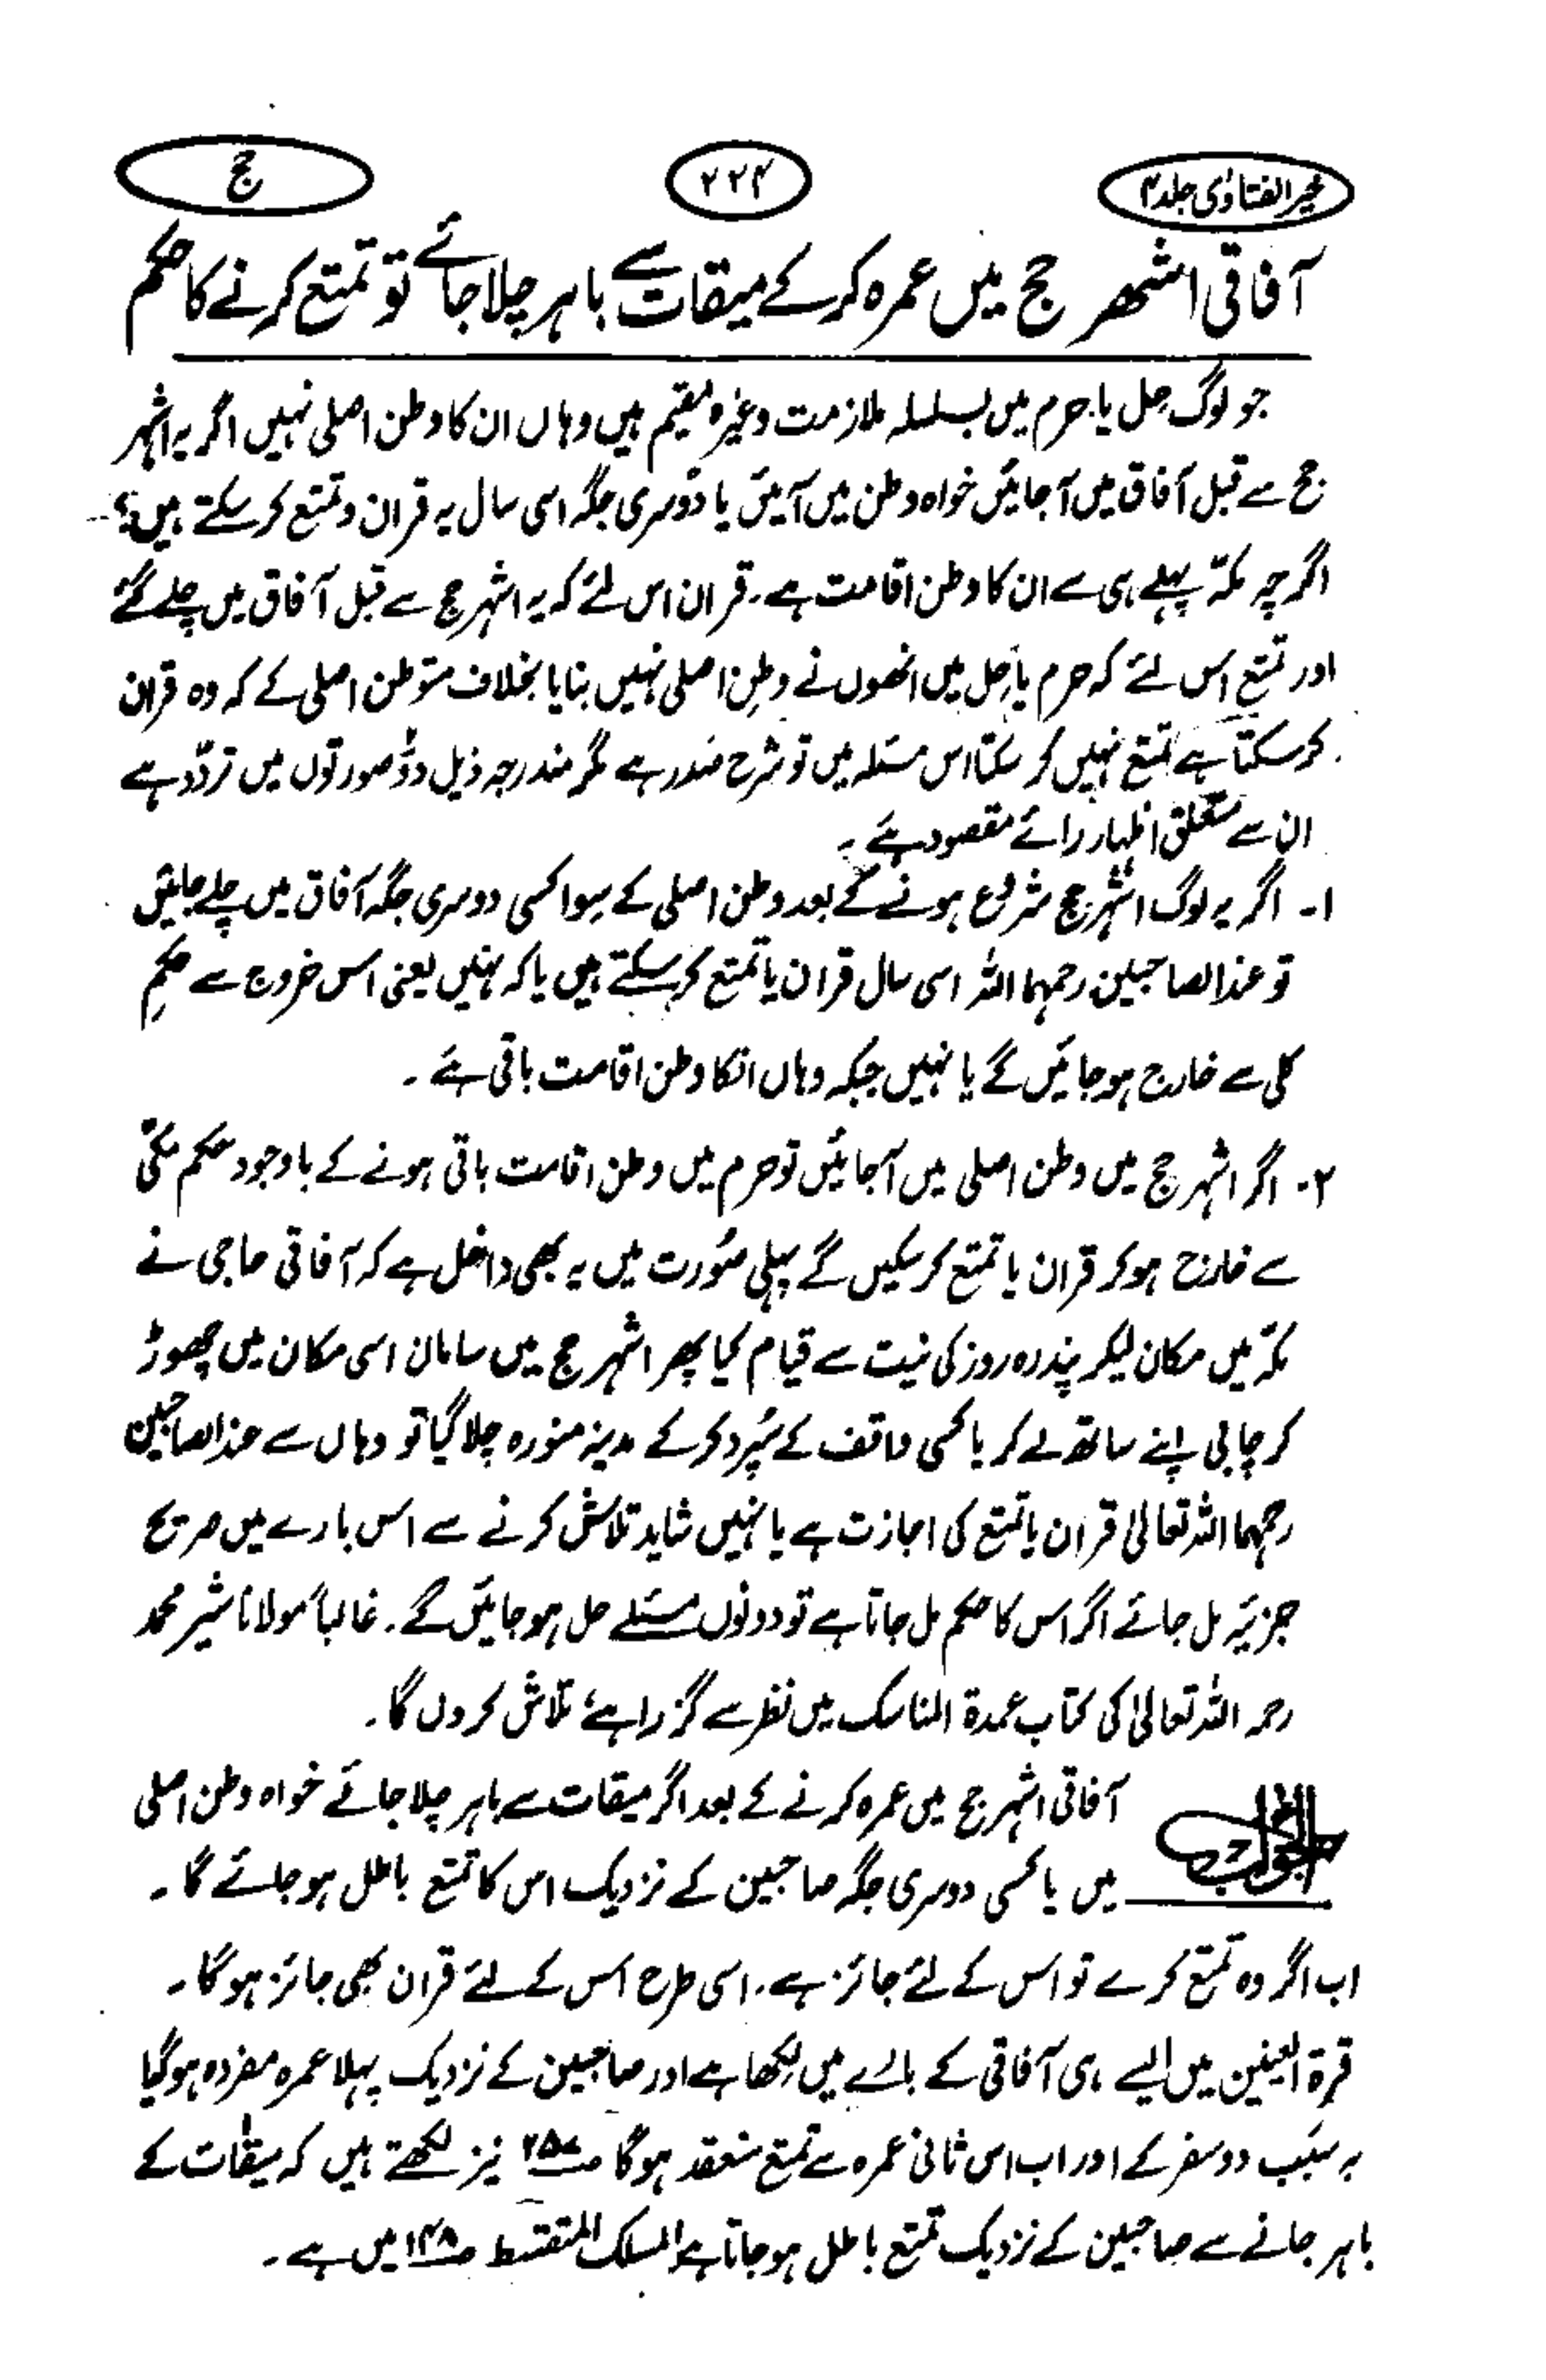 خیر الفتاوی جلد ۴
۲۲۴
حج
آفاقی اشھر حج میں عمرہ کرکے میقات سے باہر چلا جائے تو تمتع کرنے کا حکم
جو لوگ حل یا حرم میں بسلسلہ ملازمت وغیرہ مقیم ہیں وہاں ان کا وطن اصلی نہیں اگر یہ اشہر
حج سے قبل آفاق میں آجائیں خواہ وطن میں آئیں یا دوسری جگہ اسی سال یہ قران و تمتع کر سکتے ہیں؟
اگرچہ مکہ پہلے ہی سے ان کا وطن اقامت ہے۔ قران اس لئے کہ یہ اشہر حج سے قبل آفاق میں چلے گئے
اور تمتع اس لئے کہ حرم یا حل میں انھوں نے وطن اصلی نہیں بنایا بخلاف متوطن اصلی کے کہ وہ قران
کر سکتا ہے تمتع نہیں کر سکتا اس مسئلہ میں تو شرح صدر ہے مگر مندرجہ ذیل دو صورتوں میں تردد ہے
ان سے متعلق اظہار رائے مقصود ہے۔
۱۔ اگر یہ لوگ اشہر حج شروع ہونے کے بعد وطن اصلی کے سوا کسی دوسری جگہ آفاق میں چلے جائیں
تو عند الصاحبین رحمہما اللہ اسی سال قران یا تمتع کر سکتے ہیں یا کہ نہیں یعنی اس خروج سے حکمِ
مکی سے خارج ہو جائیں گے یا نہیں جبکہ وہاں انکا وطن اقامت باقی ہے۔
۲۔ اگر اشہر حج میں وطن اصلی میں آجائیں تو حرم میں وطن اقامت باقی ہونے کے باوجود حکم مکی
سے خارج ہو کر قران یا تمتع کر سکیں گے پہلی صورت میں یہ بھی داخل ہے کہ آفاقی حاجی نے
مکہ میں مکان لیکر پندرہ روز کی نیت سے قیام کیا پھر اشہر حج میں سامان اسی مکان میں چھوڑ
کر چابی اپنے ساتھ لے کر یا کسی واقف کے سپرد کر کے مدینہ منورہ چلا گیا تو وہاں سے عند الصاحبین
رحمہما اللہ تعالیٰ قران یا تمتع کی اجازت ہے یا نہیں شاید تلاش کرنے سے اس بارے میں صریح
جزئیہ مل جائے اگر اس کا حکم مل جاتا ہے تو دونوں مسئلے حل ہو جائیں گے۔ غالباً مولانا شیر محمد
رحمہ اللہ تعالیٰ کی کتاب عمدۃ المناسک میں نظر سے گزرا ہے تلاش کروں گا۔
الجواب آفاقی اشہر حج میں عمرہ کرنے کے بعد اگر میقات سے باہر چلا جائے خواہ وطن اصلی
میں یا کسی دوسری جگہ صاحبین کے نزدیک اس کا تمتع باطل ہو جائے گا۔
اب اگر وہ تمتع کرے تو اس کے لئے جائز ہے۔ اسی طرح اس کے لئے قران بھی جائز ہوگا۔
قرۃ العینین میں ایسے ہی آفاقی کے بارے میں لکھا ہے اور صاحبین کے نزدیک پہلا عمرہ مفردہ ہو گیا
بہ سبب دو سفر کے اور اب اس ثانی عمرہ سے تمتع منعقد ہوگا نیز لکھتے ہیں کہ میقات کے
باہر جانے سے صاحبین کے نزدیک تمتع باطل ہو جاتا ہے المسلک المتقسط ص۱۴۸ میں ہے۔